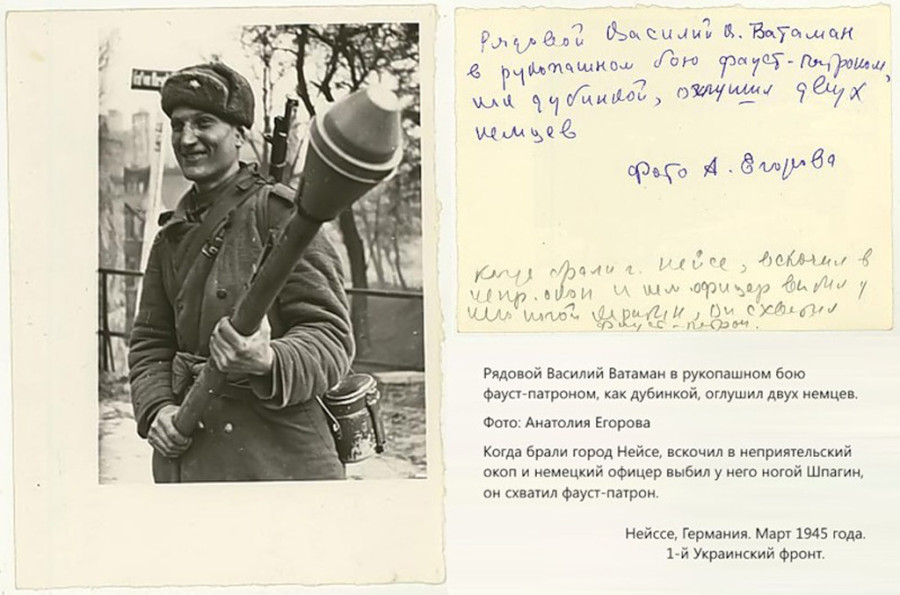 Рядовой Василий В. Ватаман
в рукопашном бою фауст-патроном,
как дубинкой, оглушил двух
немцев
Фото А. Егорова
Когда брали г. Нейсе, вскочил в
непр. окоп и нем офицер выбил у
него ногой Шпагин, он схватил
фауст-патрон.
Рядовой Василий Ватаман в рукопашном бою
фауст-патроном, как дубинкой, оглушил двух немцев.
Фото: Анатолия Егорова
Когда брали город Нейсе, вскочил в неприятельский
окоп и немецкий офицер выбил у него ногой Шпагин,
он схватил фауст-патрон.
Нейссе, Германия. Март 1945 года.
1-й Украинский фронт.